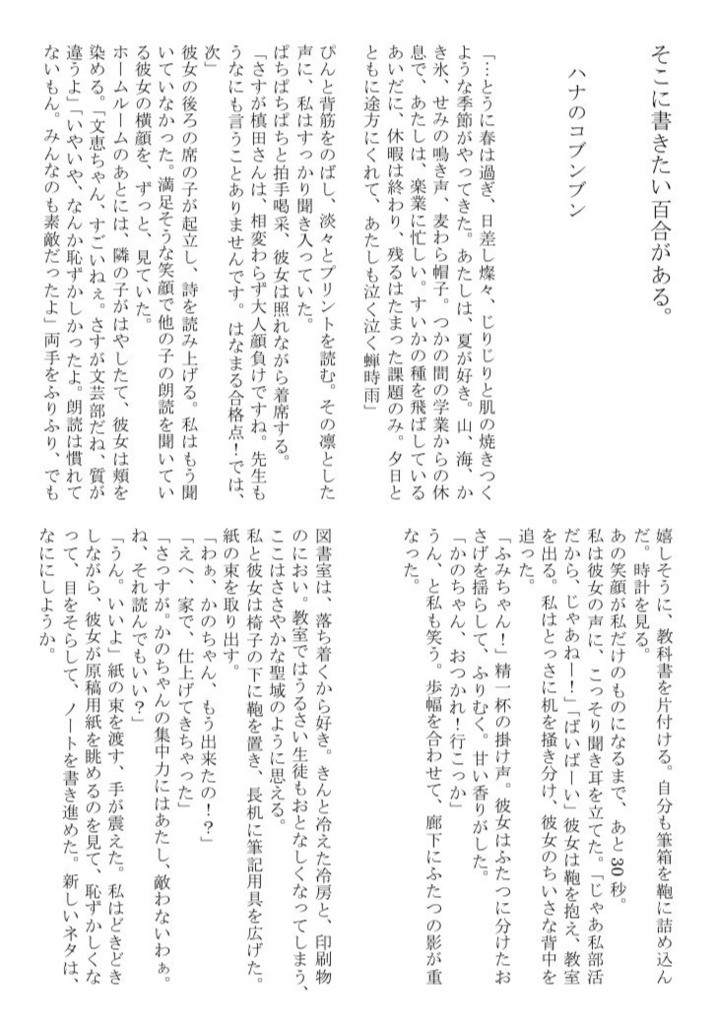 そこに書きたい百合がある。
ハナのコブンブン
「…とうに春は過ぎ、日差し燦々、じりじりと肌の焼きつく
ような季節がやってきた。あたしは、夏が好き。山、海、か
き氷、せみの鳴き声、麦わら帽子。つかの間の学業からの休
息で、あたしは、楽業に忙しい。すいかの種を飛ばしている
あいだに、休暇は終わり、残るはたまった課題のみ。夕日と
ともに途方にくれて、あたしも泣く泣く蝉時雨」
ぴんと背筋をのばし、淡々とプリントを読む。その凛とした
声に、私はすっかり聞き入っていた。
ぱちぱちぱちと拍手喝采、彼女は照れながら着席する。
「さすが槙田さんは、相変わらず大人顔負けですね。先生も
うなにも言うことありませんです。はなまる合格点！では、
次」
彼女の後ろの席の子が起立し、詩を読み上げる。私はもう聞
いていなかった。満足そうな笑顔で他の子の朗読を聞いてい
る彼女の横顔を、ずっと、見ていた。
ホームルームのあとには、隣の子がはやしたて、彼女は頬を
染める。「文恵ちゃん、すごいねぇ。さすが文芸部だね、質が
違うよ」「いやいや、なんか恥ずかしかったよ。朗読は慣れて
ないもん。みんなのも素敵だったよ」両手をふりふり、でも
嬉しそうに、教科書を片付ける。自分も筆箱を鞄に詰め込ん
だ。時計を見る。
あの笑顔が私だけのものになるまで、あと30秒。
私は彼女の声に、こっそり聞き耳を立てた。「じゃあ私部活
だから、じゃあねー！」「ばいばーい」彼女は鞄を抱え、教室
を出る。私はとっさに机を掻き分け、彼女のちいさな背中を
追った。
「ふみちゃん！」精一杯の掛け声。彼女はふたつに分けたお
さげを揺らして、ふりむく。甘い香りがした。
「かのちゃん、おつかれ！行こっか」
うん、と私も笑う。歩幅を合わせて、廊下にふたつの影が重
なった。
図書室は、落ち着くから好き。きんと冷えた冷房と、印刷物
のにおい。教室ではうるさい生徒もおとなしくなってしまう、
ここはささやかな聖域のように思える。
私と彼女は椅子の下に鞄を置き、長机に筆記用具を広げた。
紙の束を取り出す。
「わぁ、かのちゃん、もう出来たの！？」
「えへ、家で、仕上げてきちゃった」
「さっすが。かのちゃんの集中力にはあたし、敵わないわぁ。
ね、それ読んでもいい？」
「うん。いいよ」紙の束を渡す、手が震えた。私はどきどき
しながら、彼女が原稿用紙を眺めるのを見て、恥ずかしくな
って、目をそらして、ノートを書き進めた。新しいネタは、
なににしようか。